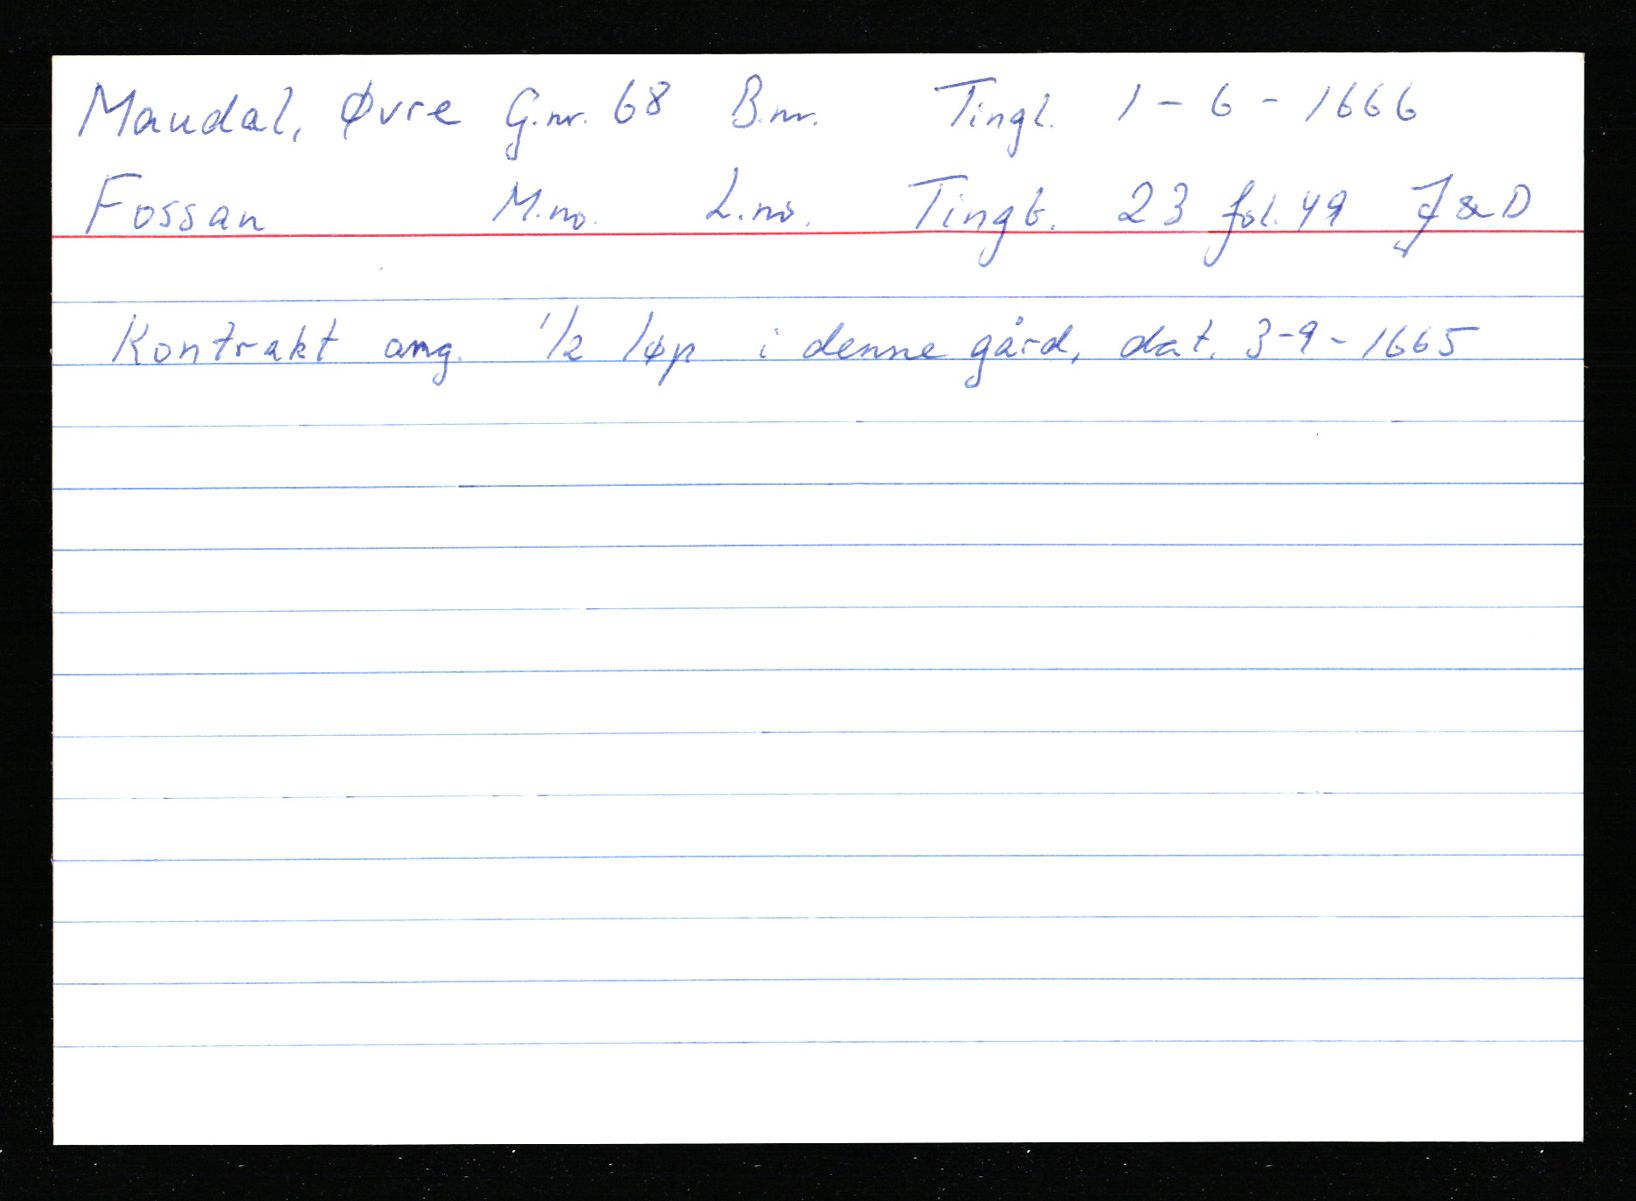 Maudal, Øvre G.nr. 68 B.nr. Tingl. 1 - 6 - 1666
Fossan M.no. L.no. Tingb. 23 fol. 49 J & D
Kontrakt ang. 1/2 løp i denne gård, dat. 3-9-1665